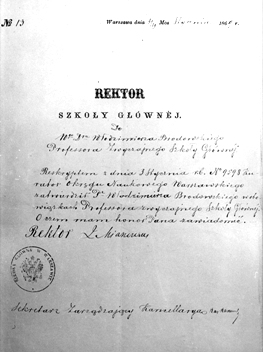 № 13
Warszawa dnia
REKTOR
SZKOŁY GŁÓWNÉJ.
Do
Włodzimierza Brodowskiego
Professora Zwyczajnego Szkoły Głównéj
Reskryptem z dnia 3 Stycznia rb. N 9898 Ku
rator Okręgu Naukowego Warszawskiego
zatwierdził Dr Włodzimierza Brodowskiego w obo
wiązkach Professora zwyczajnego Szkoły Głównéj.
O czem mam honor Pana zawiadomić.
Rektor
Sekretarz Zarządzający Kancellaryą